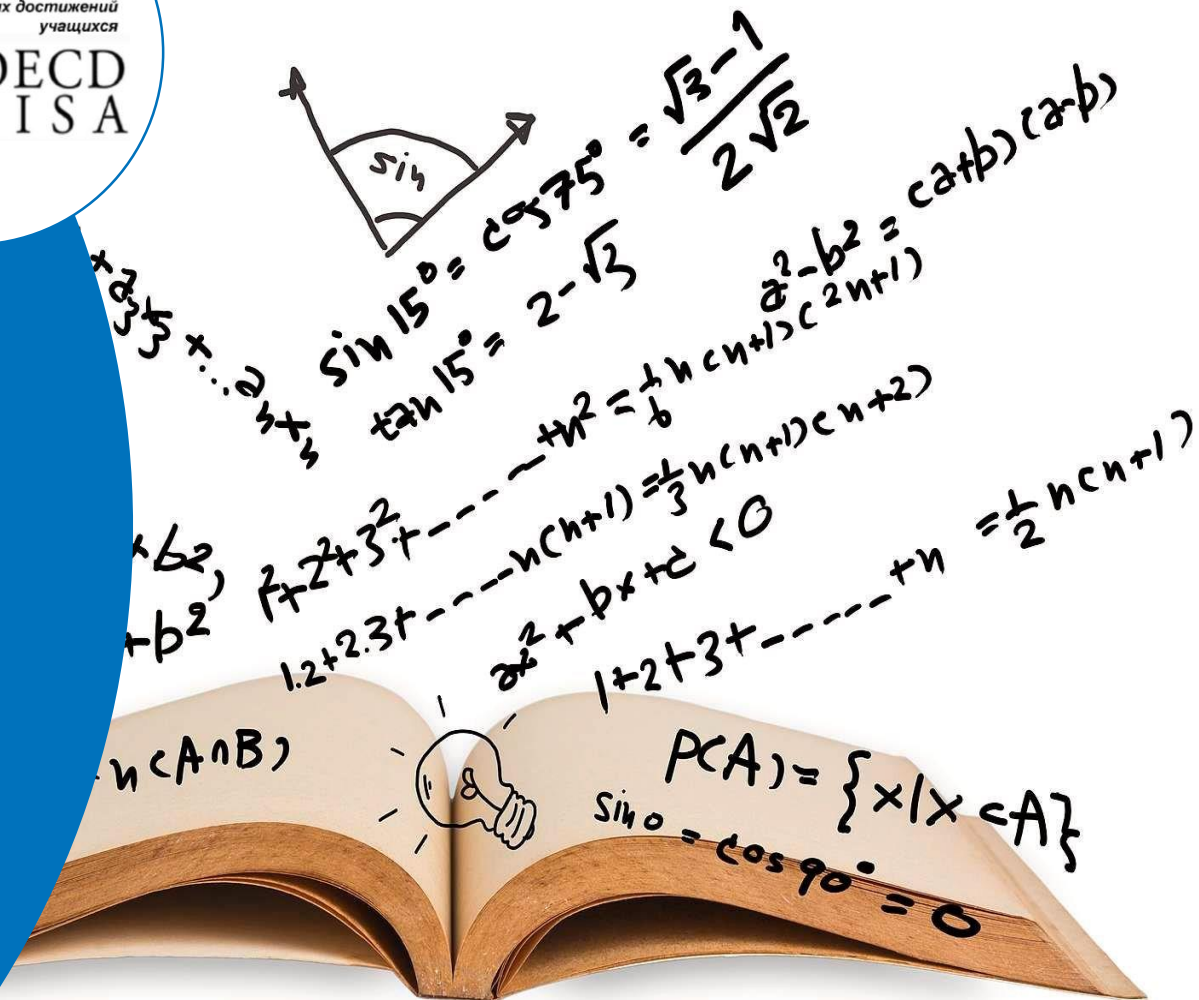 их достижений
учащихся
OECD
ISA
sin
sin 15° = cos 75° = √3-1 / 2√2
tan 15° = 2-√3
a²-b² = (a+b)(a-b)
1²+2²+3²+-----+n² = 1/6 n(n+1)(2n+1)
1.2+2.3+----n(n+1) = 1/3 n(n+1)(n+2)
ax²+bx+c <0
1+2+3+------+n = 1/2 n(n+1)
+b2,
+b²
n(A∩B)
P(A) = {x|x⊂A}
sin 0 = cos 90° = 0